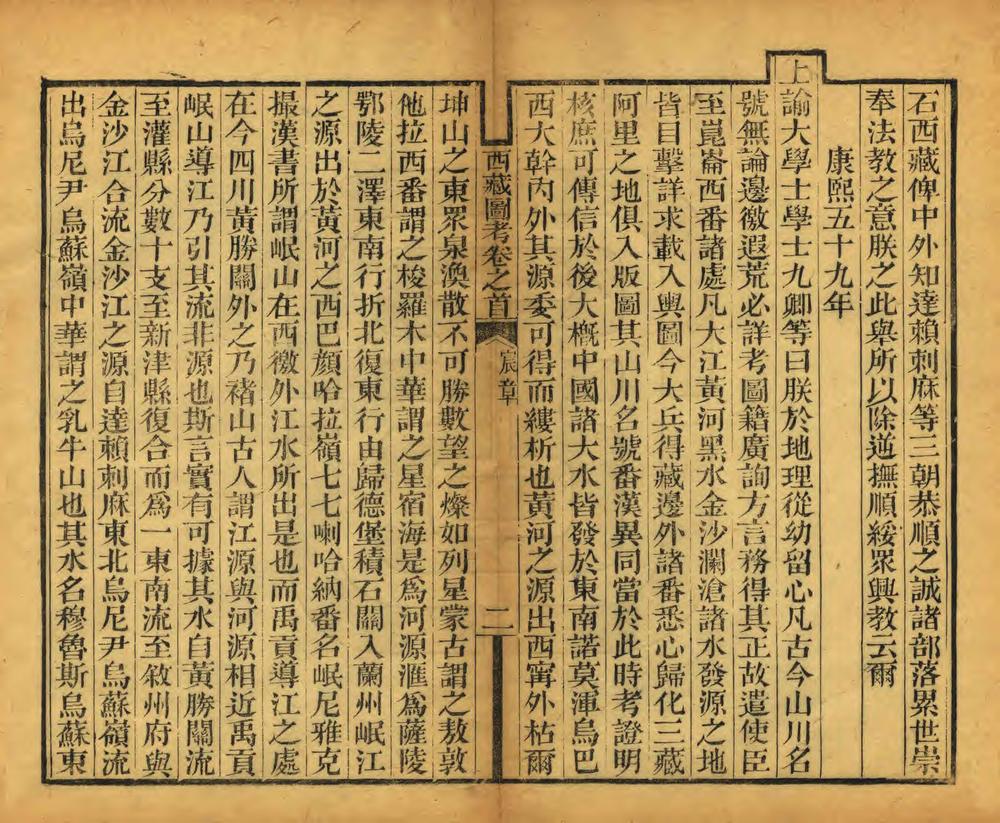 石西藏俾中外知達賴剌麻等三朝恭順之誠諸部落累世崇
奉法教之意朕之此舉所以除逆撫順綏眾興教云爾
康熙五十九年
上
諭大學士學士九卿等曰朕於地理從幼留心凡古今山川名
號無論邊徼遐荒必詳考圖籍廣詢方言務得其正故遣使臣
至崑崙西番諸處凡大江黃河黑水金沙瀾滄諸水發源之地
皆目擊詳求載入輿圖今大兵得藏邊外諸番悉心歸化三藏
阿里之地俱入版圖其山川名號番漢異同當於此時考證明
核庶可傳信於後大槪中國諸大水皆發於東南諾莫渾烏巴
西大幹內外其源委可得而縷析也黃河之源出西寧外枯爾
西藏圖考卷之首 宸章 二
坤山之東眾泉渙散不可勝數望之燦如列星蒙古謂之敖敦
他拉西番謂之梭羅木中華謂之星宿海是爲河源滙爲薩陵
鄂陵二澤東南行折北復東行由歸德堡積石關入蘭州岷江
之源出於黃河之西巴顏哈拉嶺七七喇哈納番名岷尼雅克
撮漢書所謂岷山在西徼外江水所出是也而禹貢導江之處
在今四川黃勝關外之乃褚山古人謂江源與河源相近禹貢
岷山導江乃引其流非源也斯言實有可據其水自黃勝關流
至灌縣分數十支至新津縣復合而爲一東南流至敘州府與
金沙江合流金沙江之源自達賴剌麻東北烏尼尹烏蘇嶺流
出烏尼尹烏蘇嶺中華謂之乳牛山也其水名穆魯斯烏蘇東